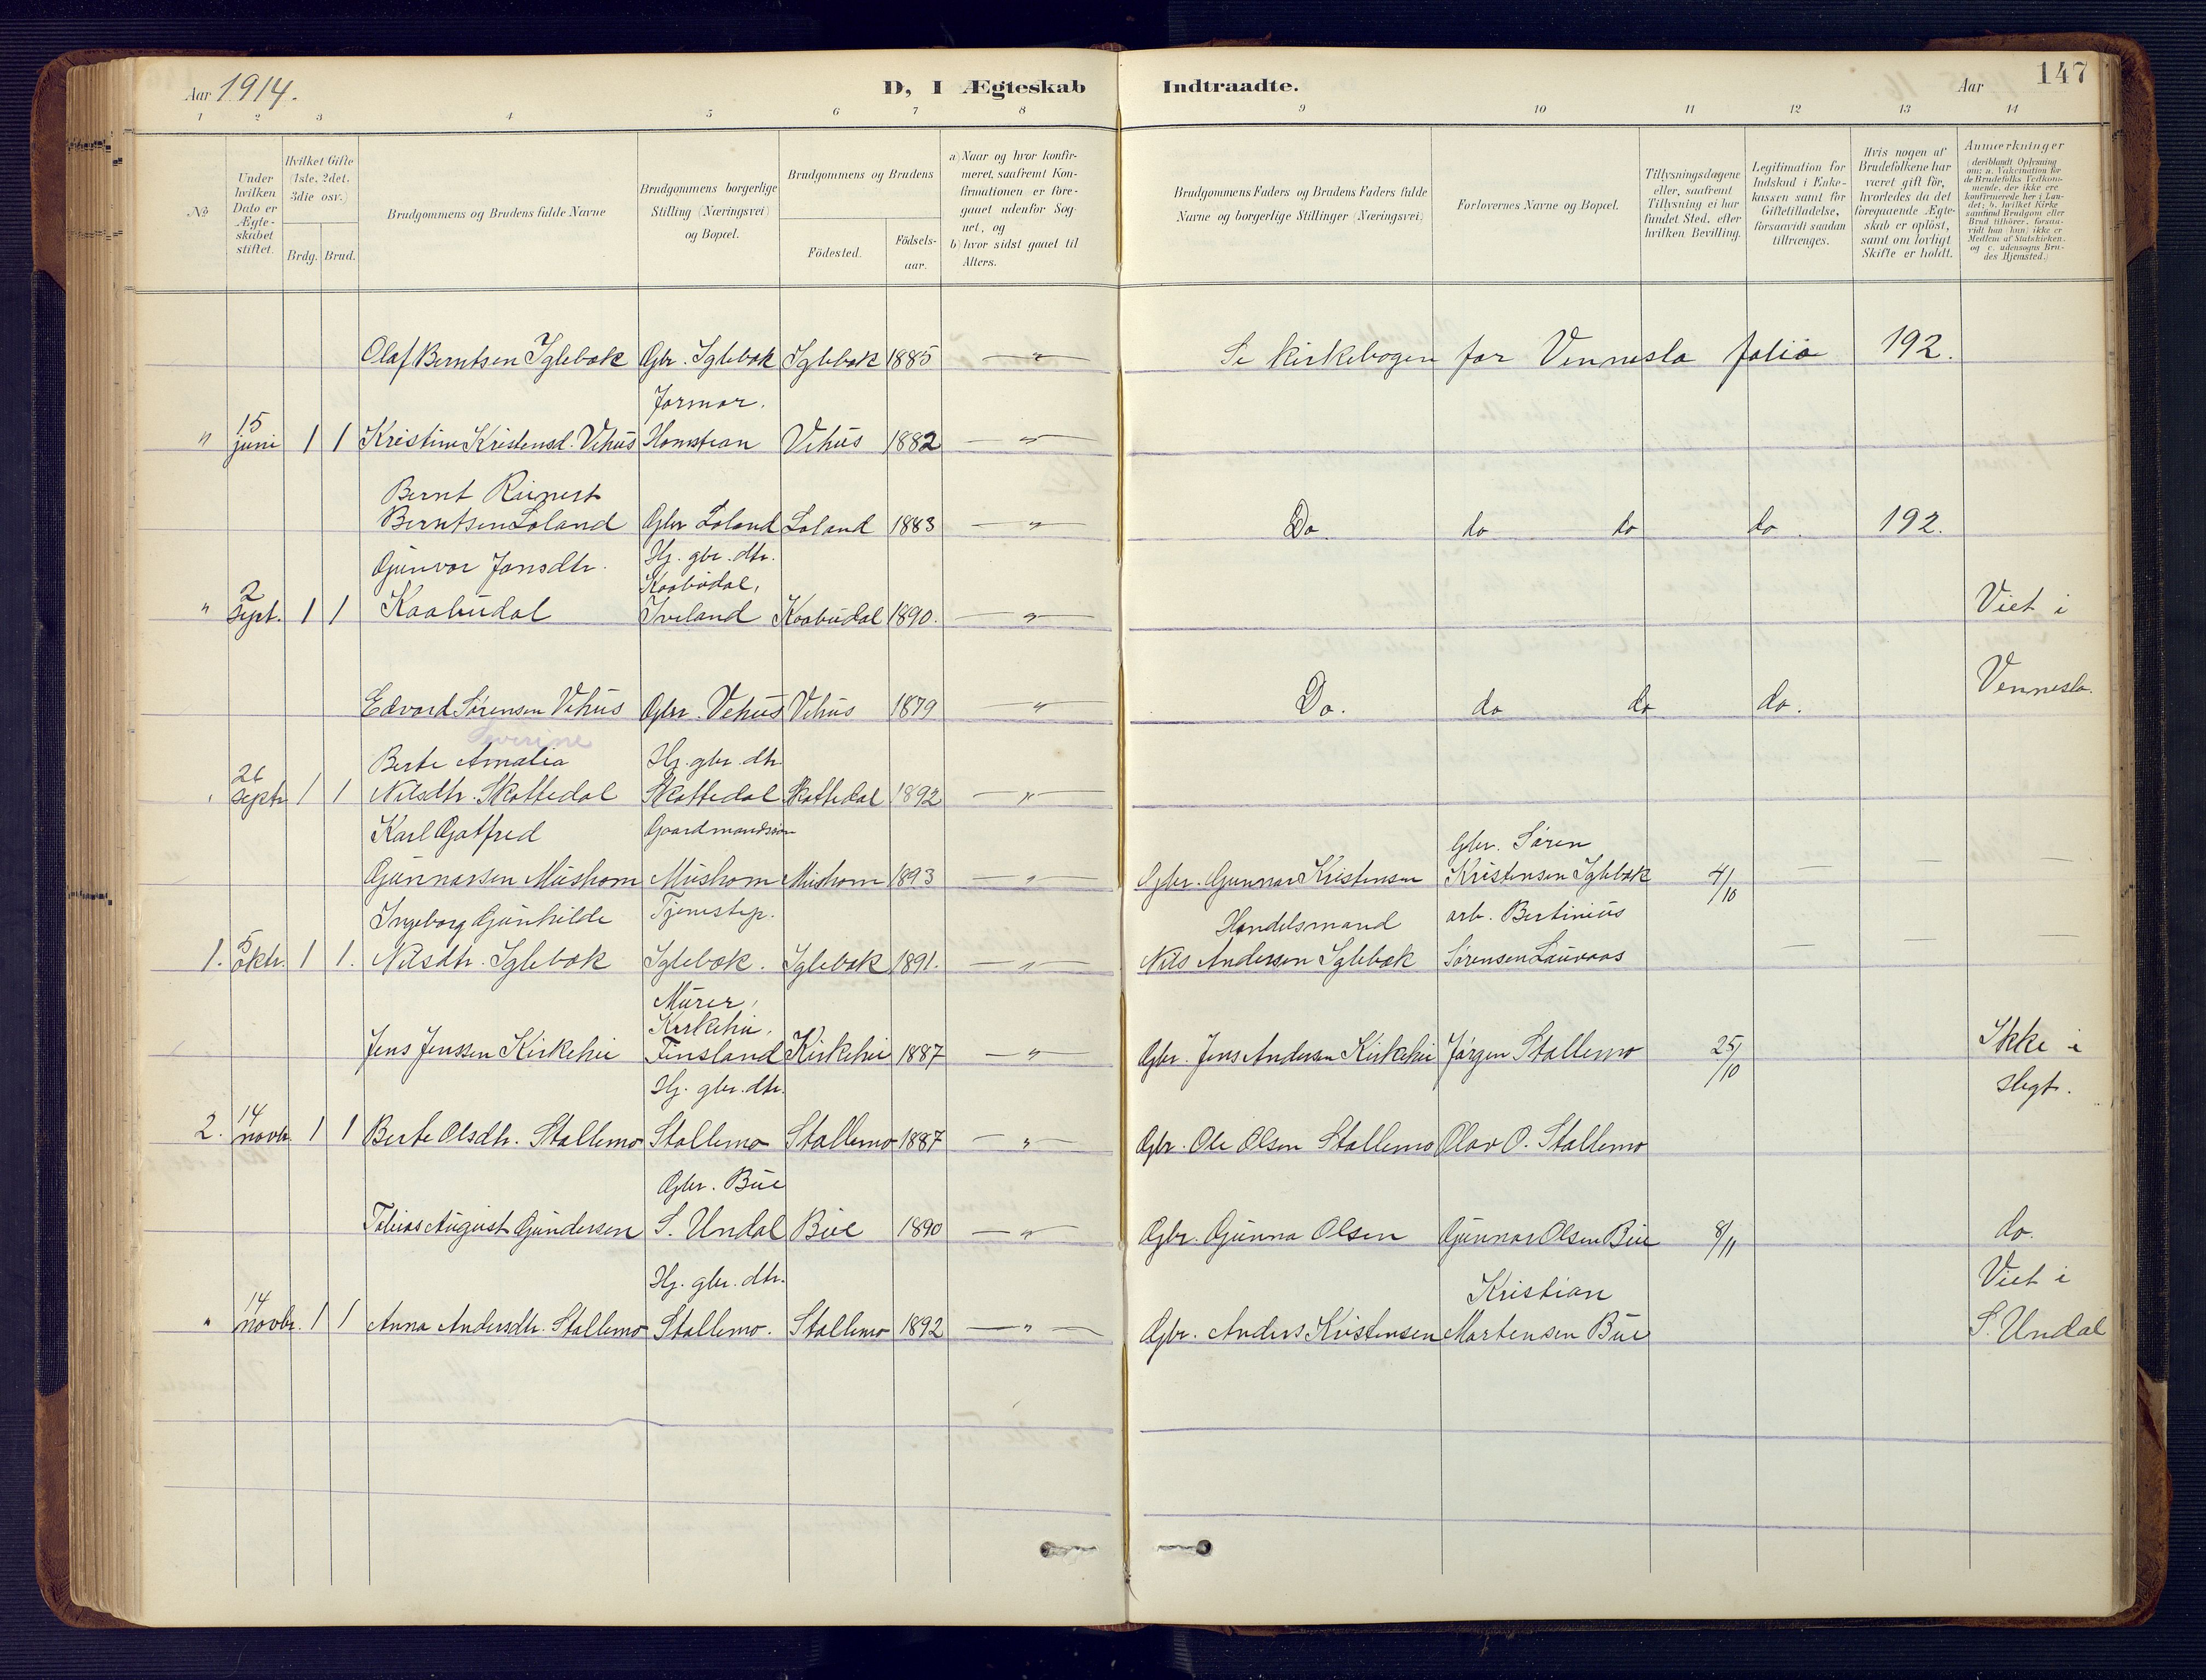 Aar 1914.
D, I Ægteskab
Indtraadte.
Aar
147
1 2 3 4 5 6 7 8 9 10 11 12 13 14
No
Under hvilken Dato er Ægteskabet stiftet.
Hvilket Gifte (1ste, 2det, 3die osv.)
Brdg. Brud.
Brudgommens og Brudens fulde Navne
Brudgommens borgerlige Stilling (Næringsvei) og Bopæl.
Brudgommens og Brudens
Födested.
Födselsaar.
a) Naar og hvor konfirmeret, saafremt Konfirmationen er foregaaet udenfor Sognet, og
b) hvor sidst gaaet til Alters.
Brudgommens Faders og Brudens Faders fulde Navne og borgerlige Stillinger (Næringsvei)
Forlovernes Navne og Bopæl.
Tillysningsdagene eller, saafremt Tillysning ei har fundet Sted, efter hvilken Bevilling.
Legitimation for Indskud i Enkekassen samt for Giftetilladelse, forsaavidt saadan tiltrænges.
Hvis nogen af Brudefolkene har været gift för, hvorledes da det foregaaende Ægteskab er oplöst, samt om lovligt Skifte er holdt.
Anmærkninger (deriblandt Oplysning om: a. Vakcination for de Brudefolks Vedkommende, der ikke ere konfirmerede her i Landet; b. hvilket Kirkesamfund Brudgom eller Brud tilhörer, forsaavidt han (hun) ikke er Medlem af Statskirken, og c. udensogns Brudes Hjemsted.)
Olaf Berntsen Iglebæk Gbr. Iglebæk Iglebæk 1885 — " — Se kirkebogen for Vennesla folio 192.
Formor.
" 15 juni 1 1 Kristine Kristensd. Vehus Homstean Vehus 1882 — " —
Bernt Reinert
Berntsen Loland Gbr Loland Loland 1883 — " — Do. do do do. 192.
Gunvor Jonsdtr. Hj. gbr. dtr.
Kaabudal,
" 2 Sept. 1 1 Kaabudal Iveland Kaabudal 1890. — " — Viet i
Vennesla.
Edvard Sørensen Vehus Gbr. Vehus Vehus 1879 — " — Do. do do do.
Severine
Berte Amalia Hj. gbr. dtr.
26 Septr 1 1 Nilsdtr. Skottedal Skottedal Skottedal 1892 — " —
Karl Gotfred Gaardmandssøn Gbr. Søren
Gunnarsen Mushom Mushom Mushom 1893 — " — Gbr. Gunnar Kristensen Kristensen Iglebæk 4/10 — — —
Ingeborg Gunhilde Tjenestep. Handelsmand arb. Bertinius
1. 5 oktr. 1 1. Nilsdtr. Iglebæk Iglebæk. Iglebæk 1891. — " — Nils Andersen Iglebæk Sørensen Lauvaas — — —
Murer,
Kirkehei,
Jens Jenssen Kirkehei Finsland Kirkehei 1887 — " — Gbr. Jens Andersen Kirkehei Jørgen Stallemo 25/10 Ikke i
Hj. gbr. dtr. slegt.
2. 14 novb. 1 1 Berte Olsdtr. Stallemo Stallemo Stallemo 1887 — " — Gbr. Ole Olsen Stallemo Olav O. Stallemo
Gbr. Bue
Tobias August Gundersen S. Undal Bue 1890 — " — Gbr. Gunna Olsen Gunnar Olsen Bue 8/11 do.
Hj. gbr. dtr. Kristian Viet i
" 14 novbr. 1 1 Anna Andersdtr. Stallemo Stallemo. Stallemo 1892 — " — Gbr. Anders Kristensen Martensen Bue S. Undal